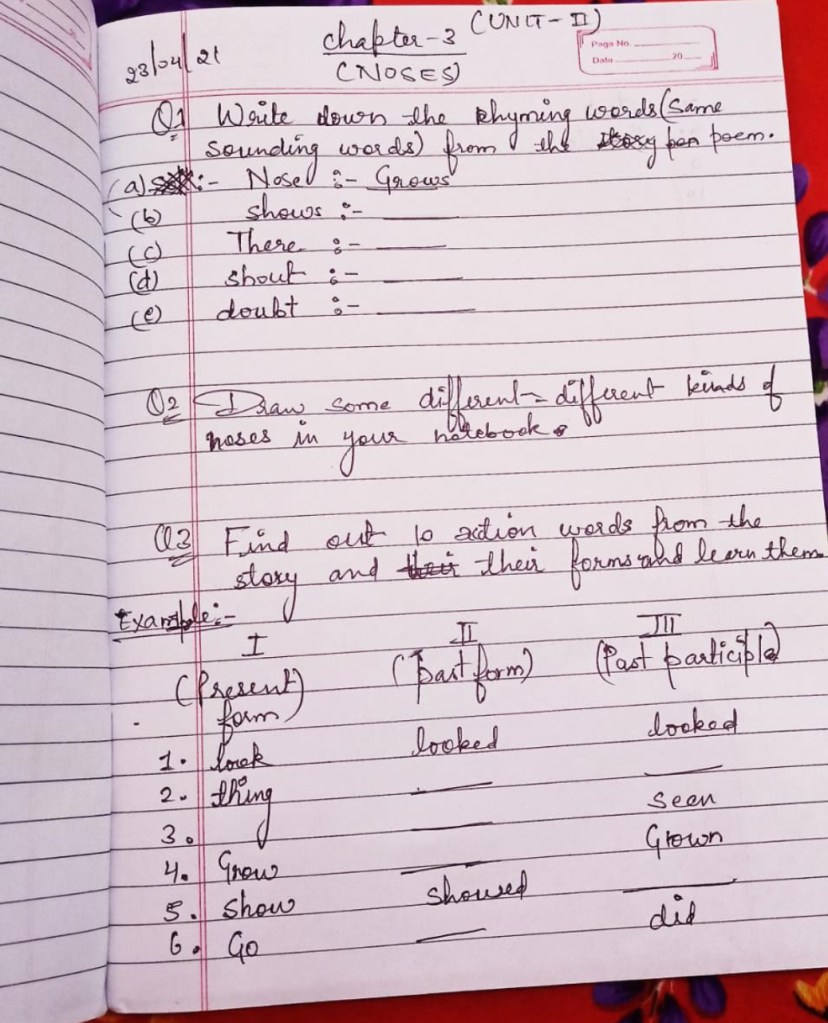 (UNIT-II)
23/04/21 Chapter-3
(NOSES)
Page No.
Date 20
Q1 Write down the Rhyming words (Same
sounding words) from the poem.
(a) :- Nose :- Grows
(b) shows :- ____
(c) There :- ____
(d) shout :- ____
(e) doubt :- ____
Q2 Draw some different-different kinds of
noses in your notebook.
Q3 Find out 10 action words from the
story and their forms and learn them
Example:-
I II III
(Present form) (Past form) (Past participle)
1. look looked looked
2. thing ____ ____
3. ____ seen
4. Grow ____ Grown
5. show showed ____
6. Go ____ did